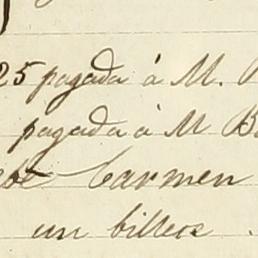 25 pagada á M.
pagada á M B
Carmen
un billete